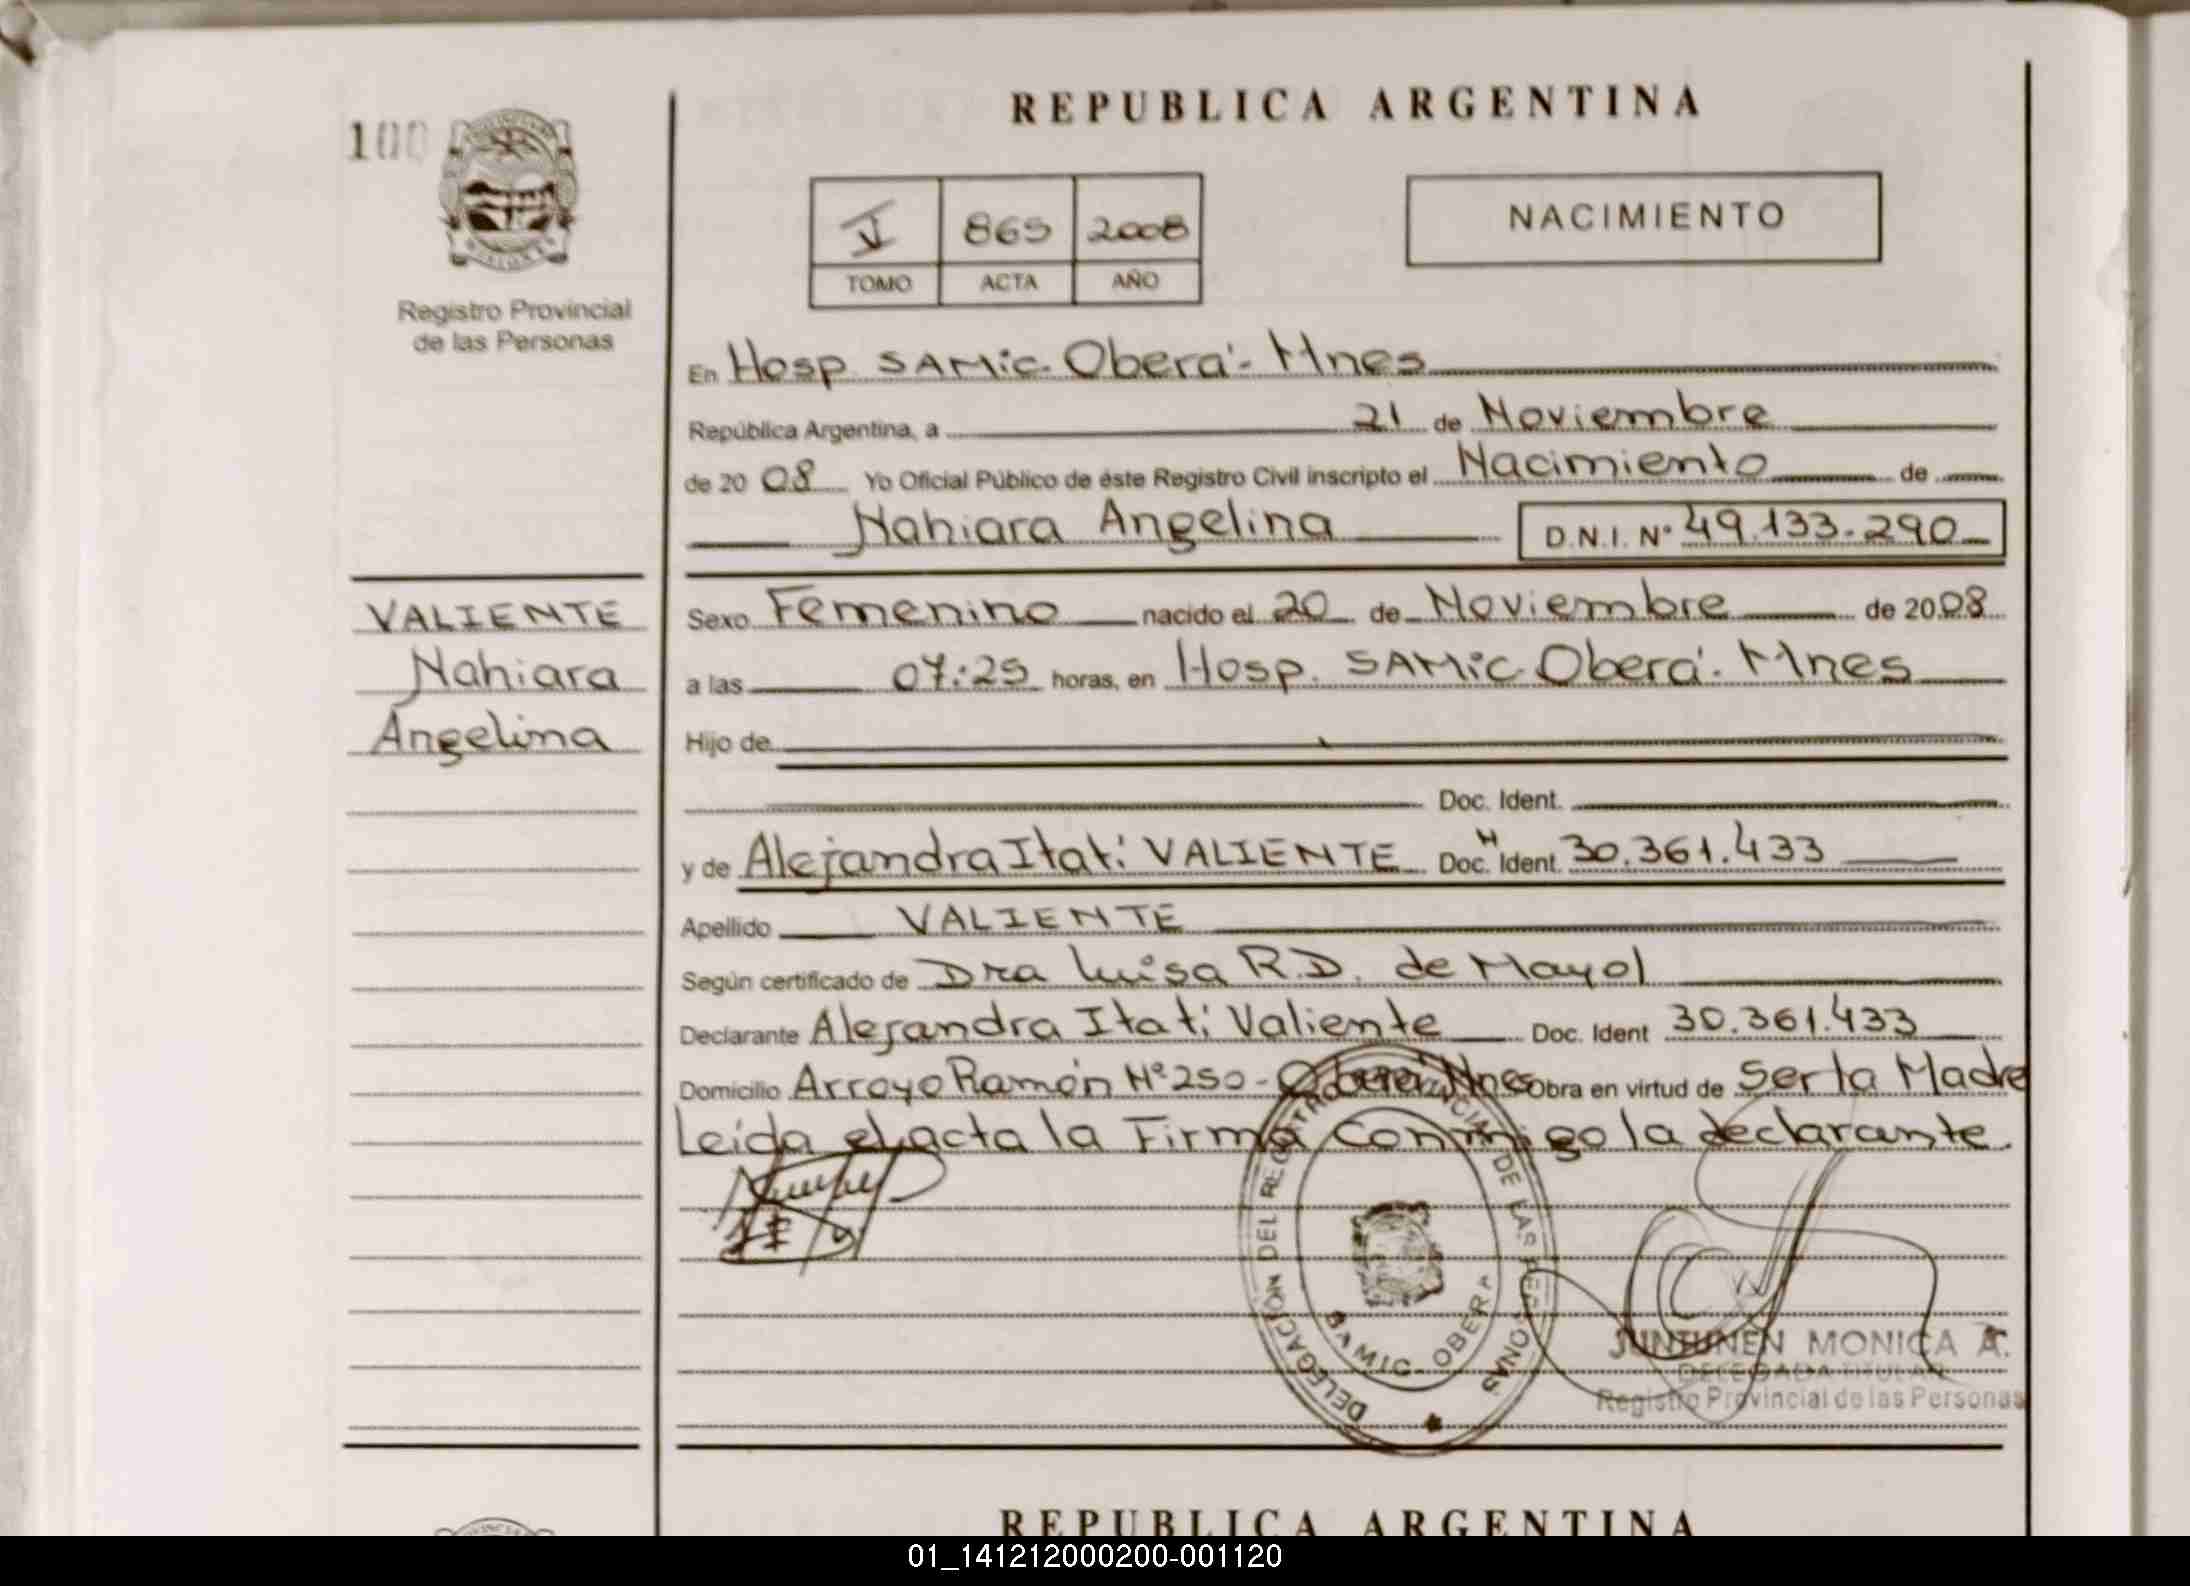 REPUBLICA ARGENTINA
100
V 865 2008
TOMO ACTA AÑO
NACIMIENTO
Registro Provincial
de las Personas
En Hosp. SAMIC. Oberá - Mnes
República Argentina, a 21 de Noviembre
de 20 08 Yo Oficial Público de éste Registro Civil inscripto el Nacimiento de
Nahiara Angelina D.N.I. Nº 49.133.290
VALIENTE
Nahiara
Angelina
Sexo Femenino nacido el 20 de Noviembre de 20 08
a las 07:25 horas, en Hosp. SAMIC Oberá. Mnes
Hijo de
Doc. Ident.
y de Alejandra Itatí VALIENTE Doc. Ident. 30.361.433
Apellido VALIENTE
Según certificado de Dra Luisa R.D. de Mayol
Declarante Alejandra Itatí Valiente Doc. Ident 30.361.433
Domicilio Arroyo Ramón Nº 250 - Oberá Mnes Obra en virtud de Ser la Madre
Leída el acta la Firma conmigo la declarante.
DELEGACIÓN DEL REGISTRO PROVINCIAL DE LAS PERSONAS
SAMIC - OBERA
JUNTUNEN MONICA A.
DELEGADA TITULAR
Registro Provincial de las Personas
REPUBLICA ARGENTINA
01_141212000200-001120